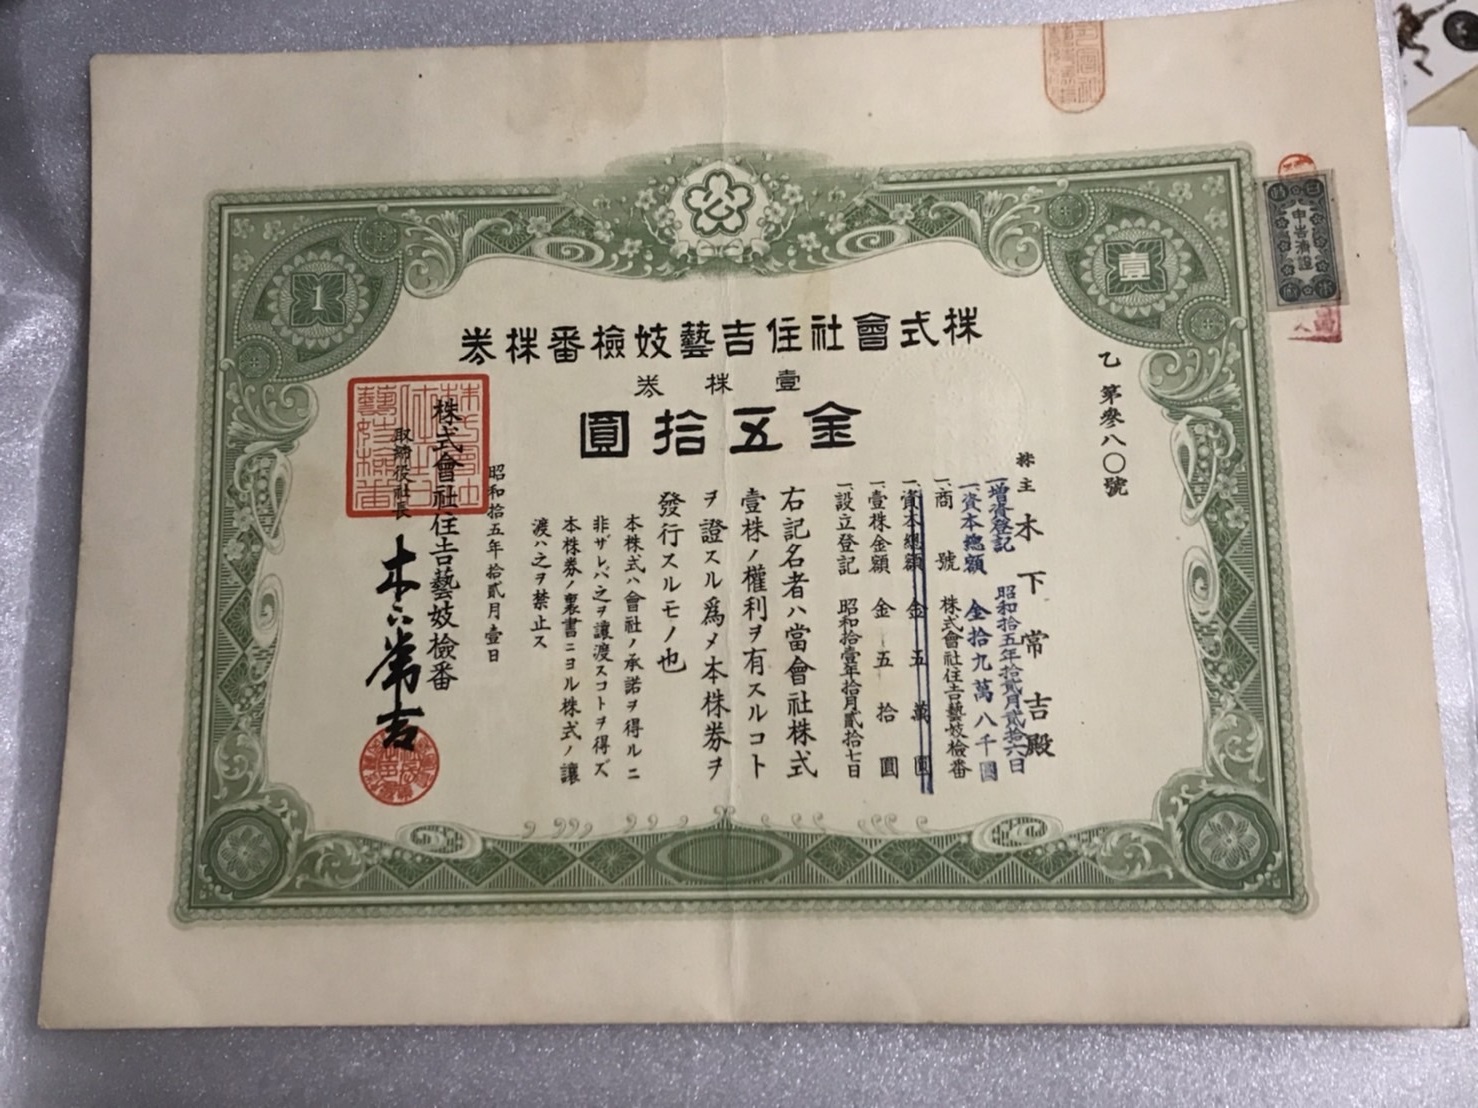 株式會社住吉藝妓檢番株券
壹株券
金五拾圓
乙第叄八〇號
株主 木下常吉殿
一、增資登記 昭和拾五年拾貳月貳拾六日
一、資本總額 金拾九萬八千圓
一、商號 株式會社住吉藝妓檢番
一、資本總額 金五萬圓
一、壹株金額 金五拾圓
一、設立登記 昭和拾壹年拾月貳拾七日
右記名者ハ當會社株式
壹株ノ權利ヲ有スルコト
ヲ證スル爲メ本株券ヲ
發行スルモノ也
本株式ハ會社ノ承諾ヲ得ルニ
非ザレバ之ヲ讓渡スコトヲ得ズ
本株券ノ裏書ニヨル株式ノ讓
渡ハ之ヲ禁止ス
昭和拾五年拾貳月壹日
株式會社住吉藝妓檢番
取締役社長 木下常吉
1
壹
公
申告濟證